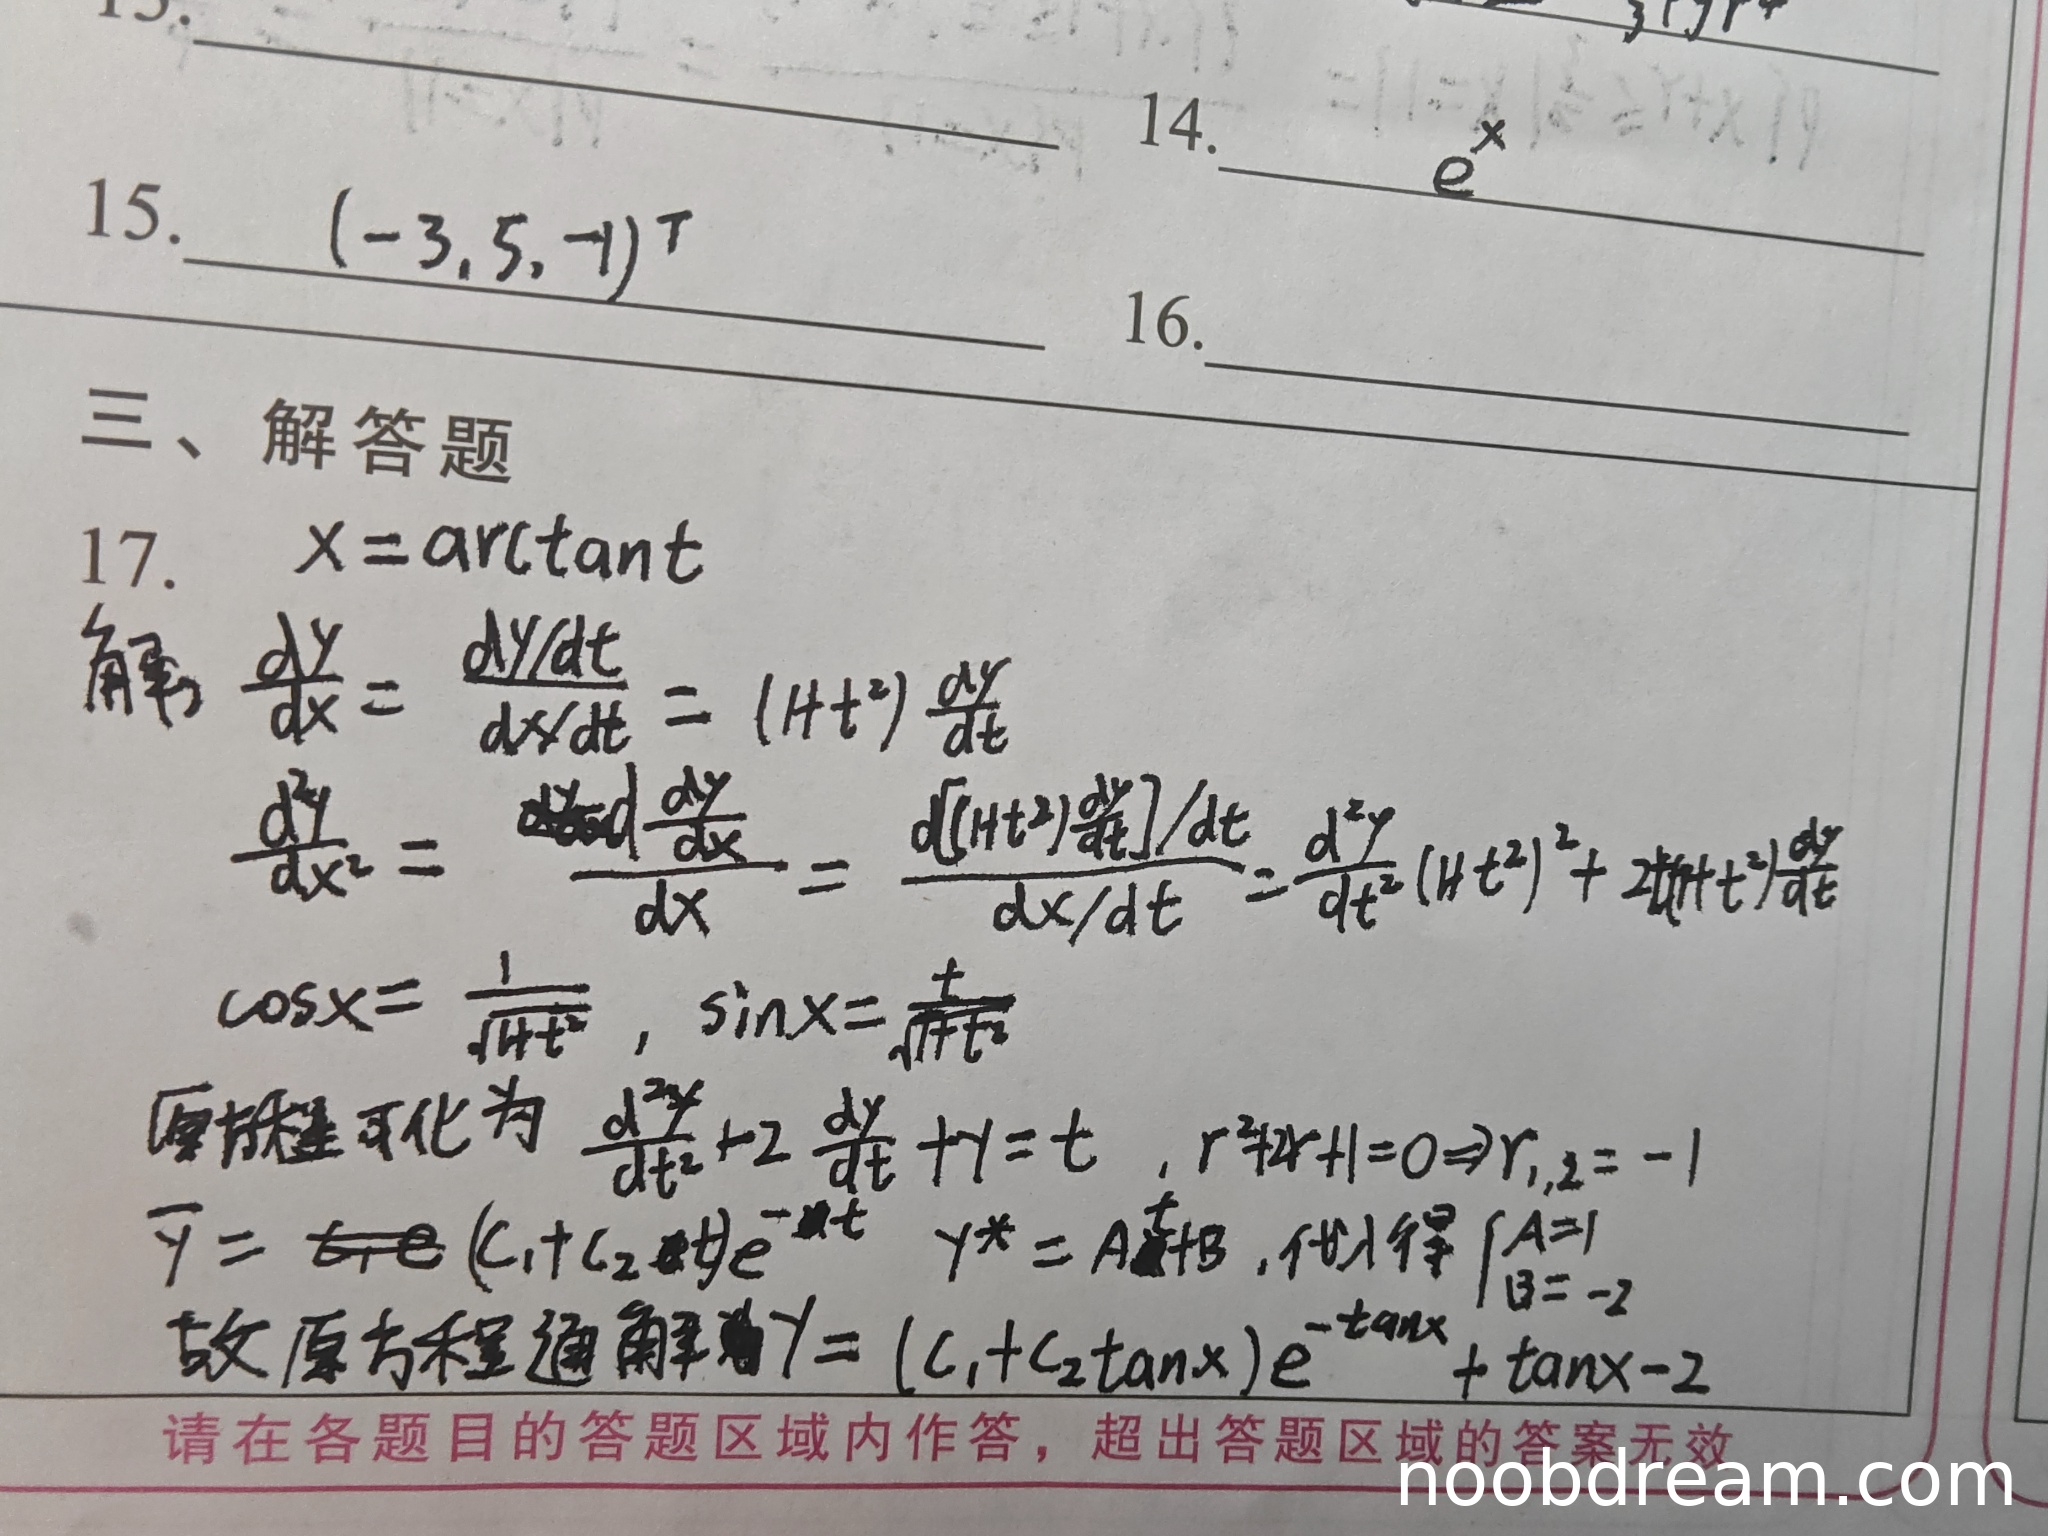 13.
14. e^x
15. (-3, 5, -1)^T
16.
三、解答题
17. x = arctan t
解 dy/dx = (dy/dt)/(dx/dt) = (1+t²) dy/dt
d²y/dx² = d(dy/dx)/dx = (d[(1+t²)dy/dt]/dt)/(dx/dt) = d²y/dt² (1+t²)² + 2t(1+t²) dy/dt
cosx = 1/√(1+t²) , sinx = t/√(1+t²)
原方程可化为 d²y/dt² + 2 dy/dt + y = t , r²+2r+1=0 ⇒ r₁,₂ = -1
ȳ = (C₁+C₂t)e^(-t) y* = At+B , 代入得 { A=1 B=-2
故原方程通解为 y = (C₁+C₂tanx)e^(-tanx) + tanx-2
请在各题目的答题区域内作答，超出答题区域的答案无效
noobdream.com